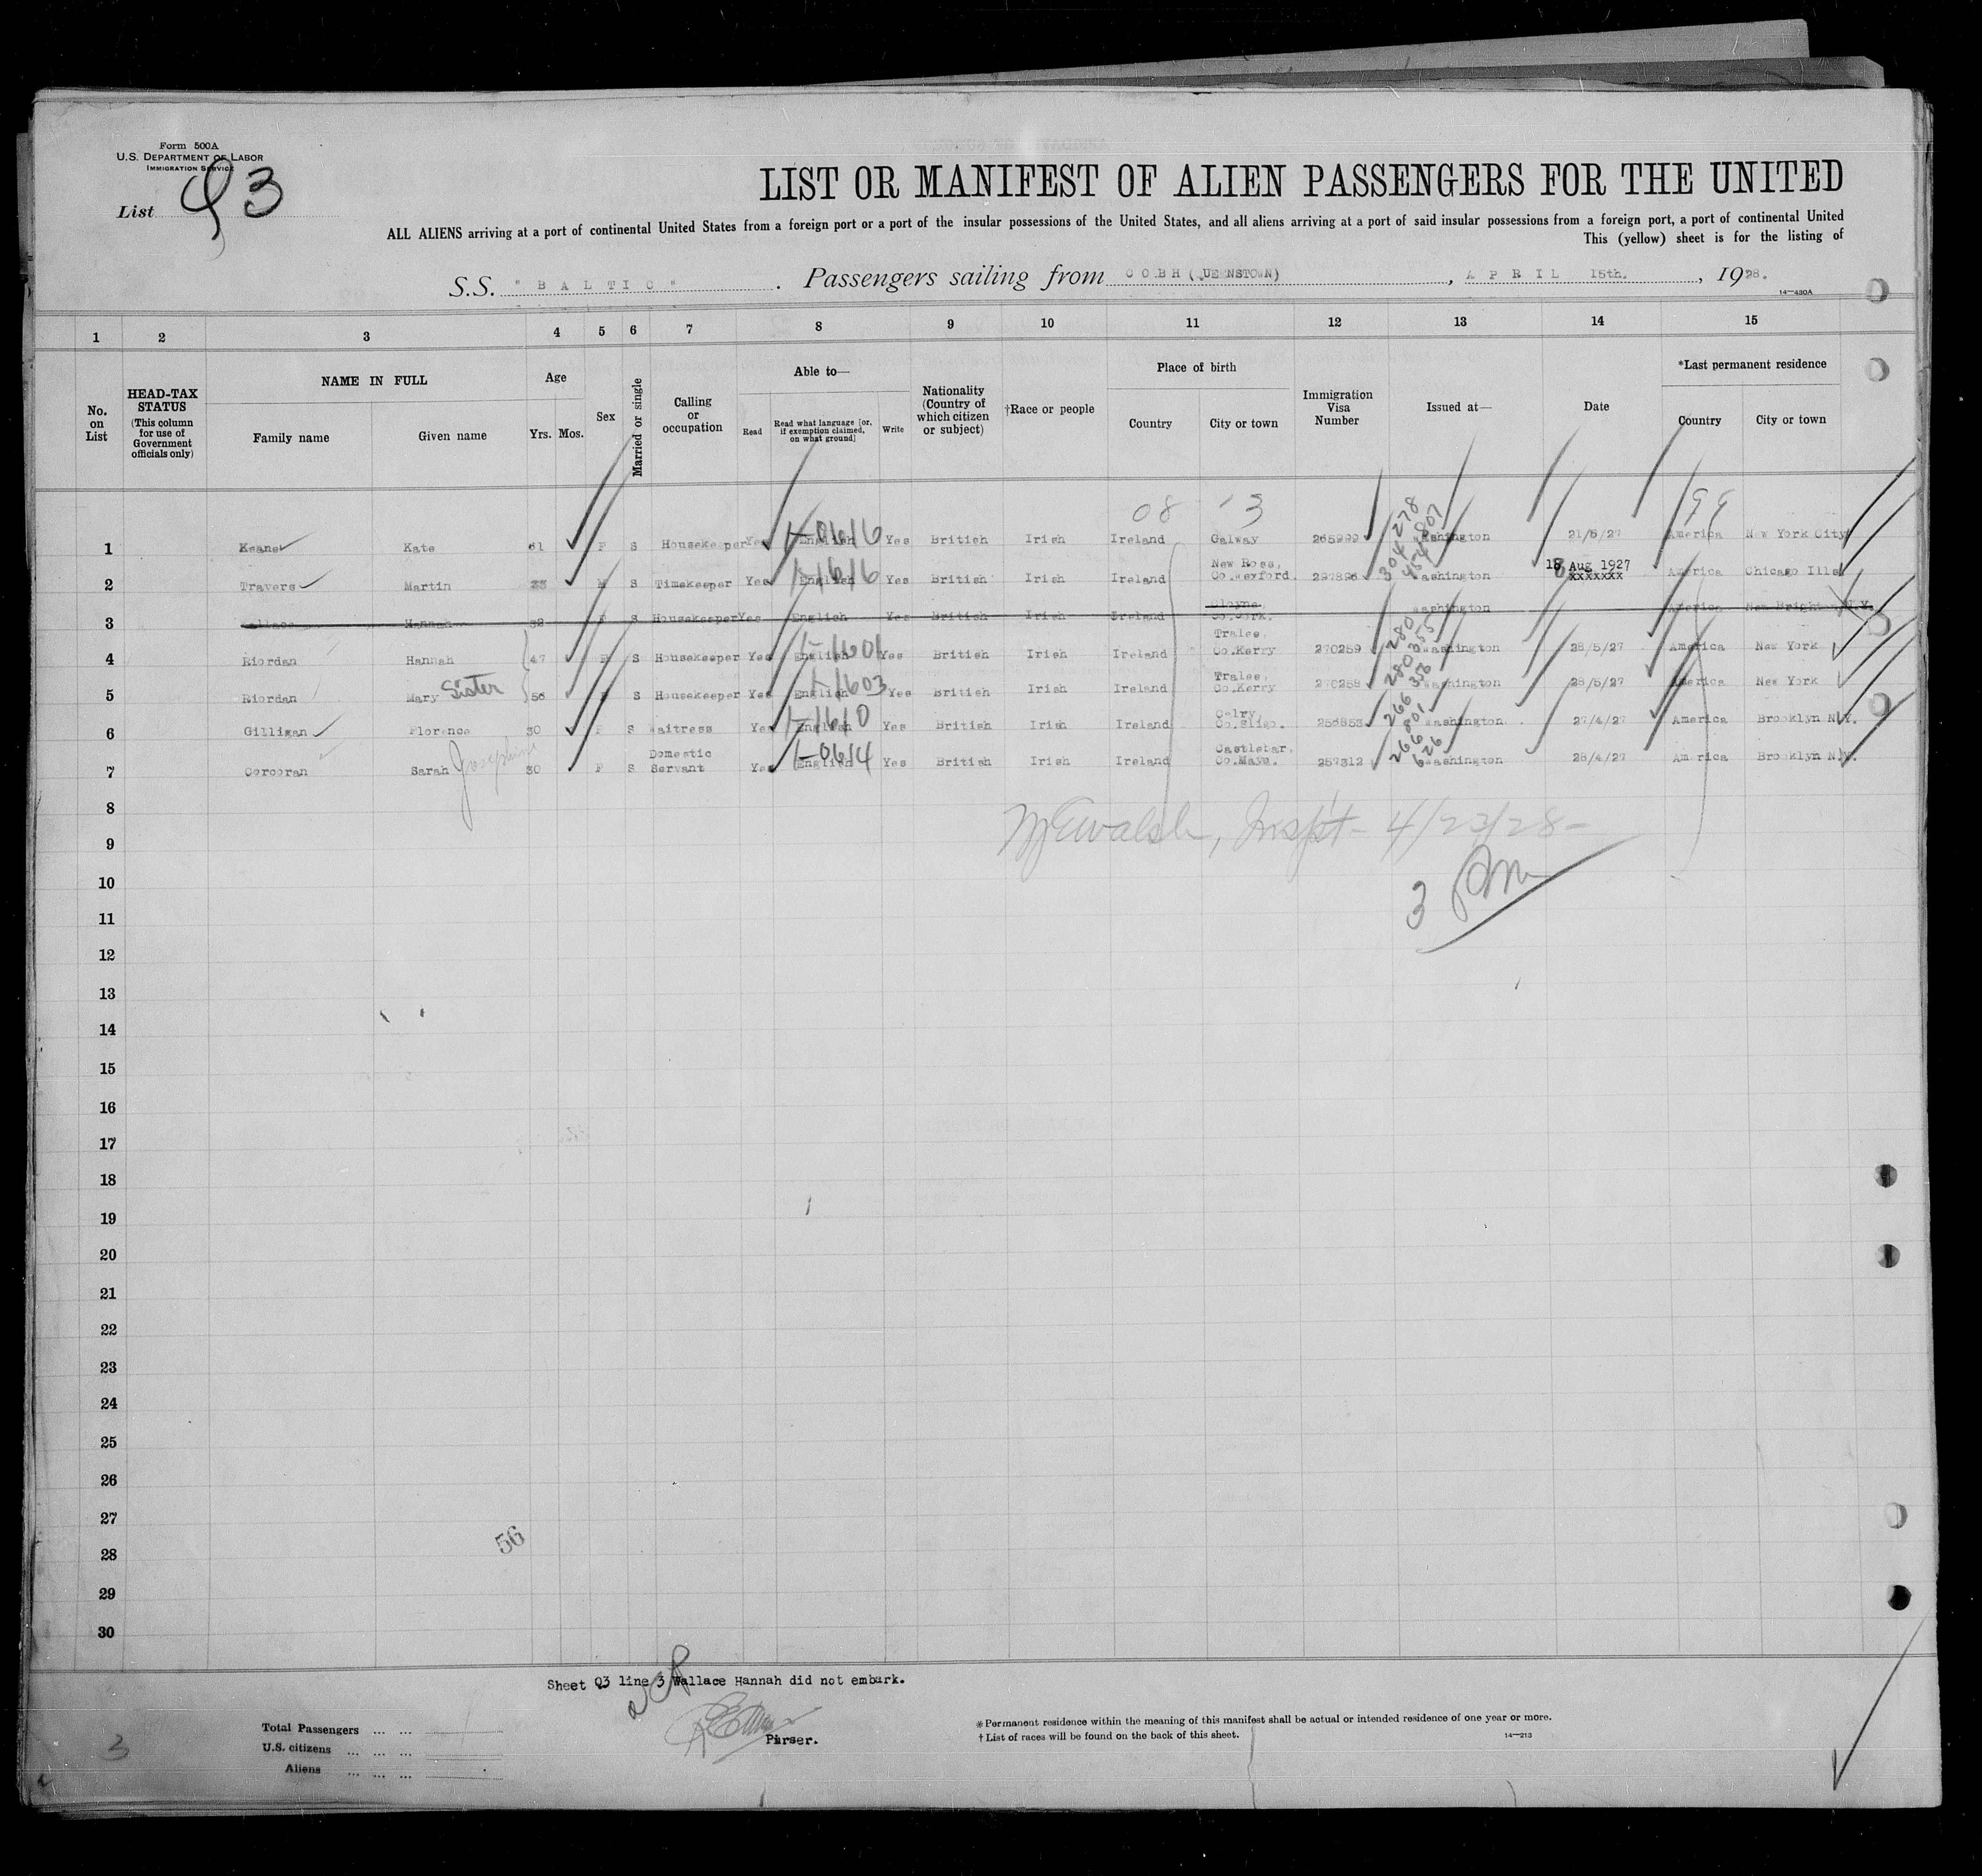 Form 500A
U.S. DEPARTMENT OF LABOR
IMMIGRATION SERVICE
List Q3
LIST OR MANIFEST OF ALIEN PASSENGERS FOR THE UNITED
ALL ALIENS arriving at a port of continental United States from a foreign port or a port of the insular possessions of the United States, and all aliens arriving at a port of said insular possessions from a foreign port, a port of continental United
This (yellow) sheet is for the listing of
S.S. "BALTIC". Passengers sailing from COBH (QUEENSTOWN), APRIL 15th., 1928.
14—430A
1 2 3 4 5 6 7 8 9 10 11 12 13 14 15
No. on List
HEAD-TAX STATUS (This column for use of Government officials only)
NAME IN FULL
Family name Given name
Age
Yrs. Mos.
Sex
Married or single
Calling or occupation
Able to—
Read Read what language [or, if exemption claimed, on what ground] Write
Nationality (Country of which citizen or subject)
†Race or people
Place of birth
Country City or town
Immigration Visa Number
Issued at—
Date
*Last permanent residence
Country City or town
08 13 99
1 Keane Kate 61 F S Housekeeper Yes English Yes British Irish Ireland Galway 265999 Washington 21/5/27 America New York City
2 Travers Martin 33 M S Timekeeper Yes English Yes British Irish Ireland New Ross, Co.Wexford. 297896 Washington 18 Aug 1927 xxxxxxx America Chicago Ills
3 Wallace Hannah 38 F S Housekeeper Yes English Yes British Irish Ireland Cloyne Co.Cork. Washington America New Brighton N.Y.
4 Riordan Hannah 47 F S Housekeeper Yes English Yes British Irish Ireland Tralee, Co.Kerry 270259 Washington 28/5/27 America New York
5 Riordan Mary Sister 56 F S Housekeeper Yes English Yes British Irish Ireland Tralee, Co.Kerry 270258 Washington 28/5/27 America New York
6 Gilligan Florence 30 F S Waitress Yes English Yes British Irish Ireland Calry Co.Sligo. 256853 Washington 27/4/27 America Brooklyn N.Y.
7 Corcoran Sarah Josephine 30 F S Domestic Servant Yes English Yes British Irish Ireland Castlebar, Co.Mayo. 257312 Washington 28/4/27 America Brooklyn N.Y.
8
MEWalsh, Insp't- 4/23/28-
9
10
3 pm
11
12
13
14
15
16
17
18
19
20
21
22
23
24
25
26
27
56
28
29
30
Sheet Q3 line 3 Wallace Hannah did not embark.
Purser.
3
Total Passengers ... ...
U.S. citizens ... ... ...
Aliens ... ... ...
* Permanent residence within the meaning of this manifest shall be actual or intended residence of one year or more.
† List of races will be found on the back of this sheet.
14—213